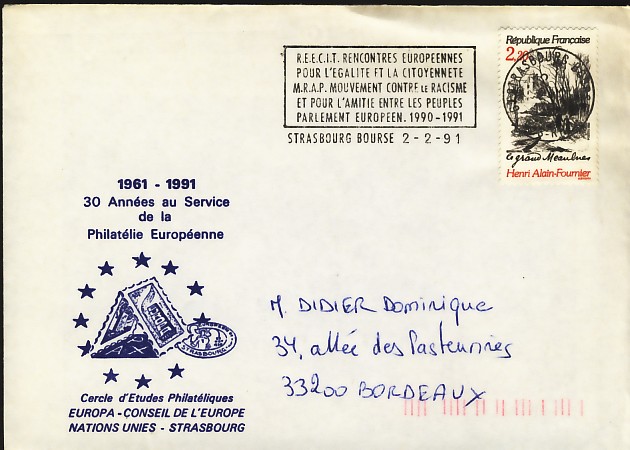 R.E.E.C.I.T. RENCONTRES EUROPEENNES
POUR L'EGALITE ET LA CITOYENNETE
M.R.A.P. MOUVEMENT CONTRE LE RACISME
ET POUR L'AMITIE ENTRE LES PEUPLES
PARLEMENT EUROPEEN. 1990-1991
STRASBOURG BOURSE 2-2-91
République Française
2,20
STRASBOURG
le grand Meaulnes
Henri Alain-Fournier
1961 - 1991
30 Années au Service
de la
Philatélie Européenne
STRASBOURG
Cercle d'Etudes Philatéliques
EUROPA - CONSEIL DE L'EUROPE
NATIONS UNIES - STRASBOURG
M. DIDIER Dominique
34, allée des Pasteurines
33200 BORDEAUX